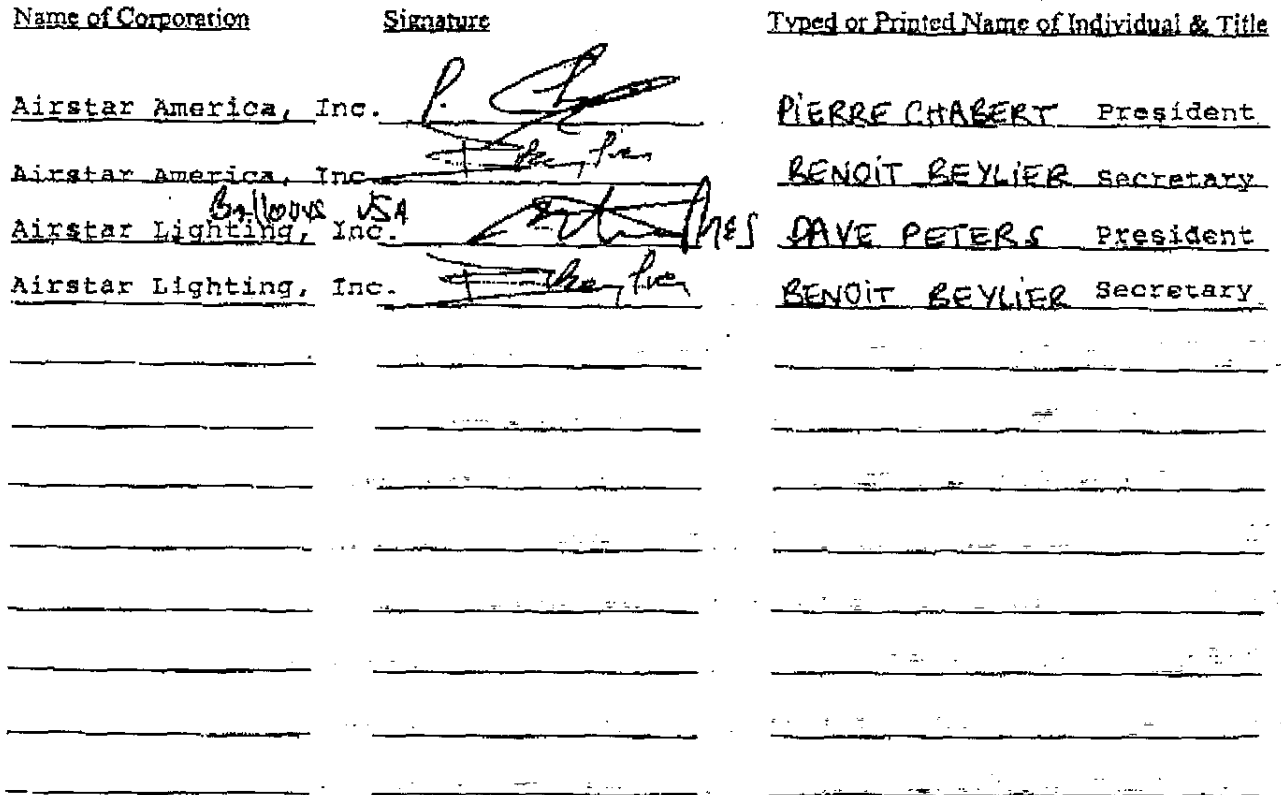 Name of Corporation Signature Typed or Printed Name of Individual & Title
Airstar America, Inc. P. PIERRE CHABERT President
Airstar America, Inc. BENOIT BEYLIER Secretary
Balloons USA
Airstar Lighting, Inc. PRES DAVE PETERS President
Airstar Lighting, Inc. BENOIT BEYLIER Secretary